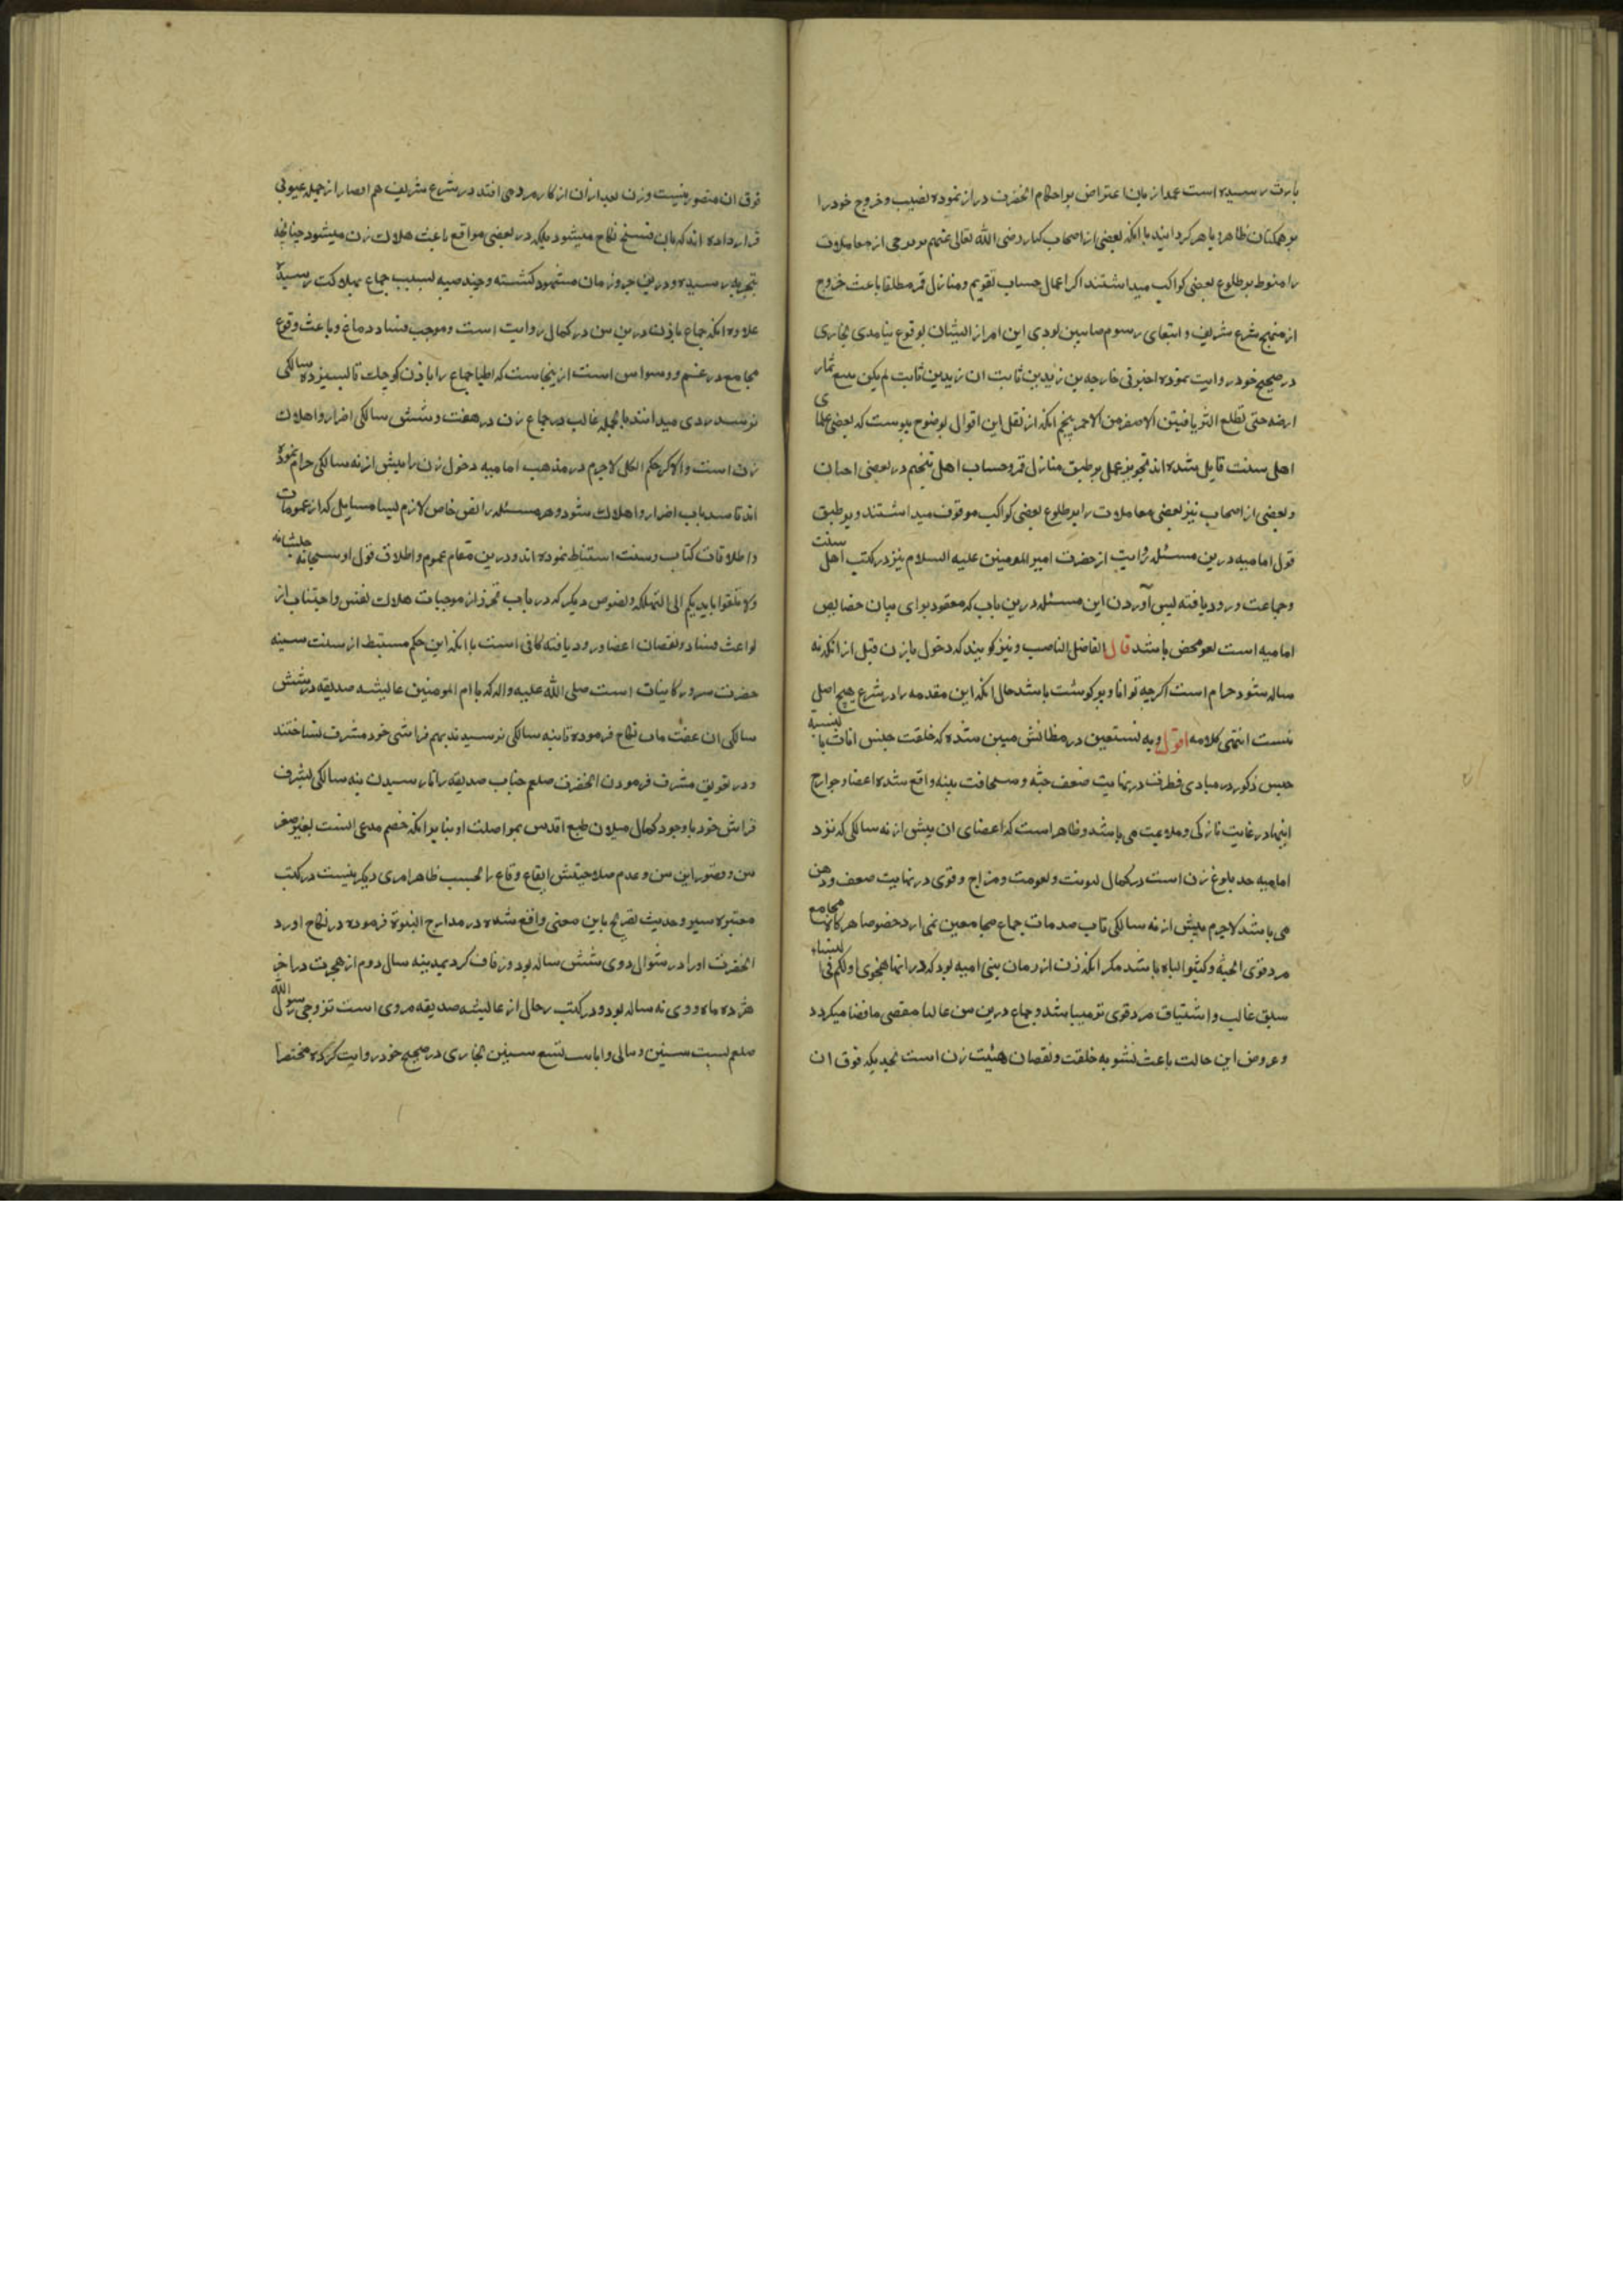 بارث رسیده است عمدا زبان اعتراض بر احکام انحضرت دراز نموده نصیب و خروج خود را
بر همکنان ظاهر و باهر کردانید با انکه بعضی از اصحاب کبار رضی الله تعالی عنهم برخی از معاملات
را منوط بر طلوع بعضی کواکب میداشتند اکر اعمال حساب تقویم و منازل قمر مطلقا باعث خروج
از منهج شرع شریف و اتباع رسوم صابیین بودی این امر از ایشان بوقوع نیامدی بخاری
در صحیح خود روایت نموده اخبرنی خارجه بن زید بن ثابت ان زید بن ثابت لم یکن یبیع ثمار
ارضه حتی تطلع الثریا فیتبین الاصفر من الاحمر پنجم انکه از نقل این اقوال بوضوح پیوست که بعضی علمای
اهل سنت قایل شده اند تجویز عمل بر طبق منازل قمر و حساب اهل تنجیم در بعضی احیان
و بعضی از اصحاب نیز بعضی معاملات را بر طلوع بعضی کواکب موقوف میداشتند و بر طبق
قول امامیه درین مسئله روایت از حضرت امیر المومنین علیه السلام نیز در کتب اهل سنت
و جماعت ورود یافته پس آوردن این مسئله درین باب که معقود برای بیان خصایص
امامیه است لغو محض باشد قال الفاضل الناصب و نیز کویند که دخول بازن قبل از انکه نه
ساله شود حرام است اکرچه توانا و پرکوشت باشد حال انکه این مقدمه را در شرع هیچ اصل
نیست انتهی کلامه اقول و به نستعین در مظانش مبین شده که خلقت جنس اناث با نسبة
جنس ذکور در مبادی فطرت در نهایت ضعف جثه و سخافت بنیه واقع شده اعضا و جوارح
اینها در غایت نازکی و ملاعبت می باشد و ظاهر است که اعضای ان پیش از نه سالکی که نزد
امامیه حد بلوغ زن است در کمال لینت و نعومت و مزاج و قوی در نهایت ضعف و وهن
می باشد لاجرم پیش از نه سالکی تاب صدمات جماع مجامعین نمی ارد خصوصا هرکاه مجامع
مرد قوی الجثه و کثیر الباه باشد مکر انکه زن از زمان بنی امیه بود که در انها همچوی اولکم فی النساء
سبق غالب و اشتیاق مرد قوی تر میباشد و جماع درین سن غالبا مفضی بافضا میکردد
و عروض این حالت باعث تشویه خلقت و نقصان هیئت زن است بحدیکه فوق ان
فوق ان متصور نیست و زن بعد از ان از کار مرد می افتد در شرع شریف هم افضا را از جمله عیوبی
قرار داده اند که بان فسخ نکاح میشود بلکه در بعضی مواقع باعث هلاک زن میشود چنانچه
بتجربه رسیده و درین جزو زمان مشهود کشته و چند صبیه بسبب جماع بهلاکت رسیده
علاوه انکه جماع بازن درین سن در کمال روایت است و موجب فساد دماغ و باعث وقوع
مجامع در غم و وسواس است ازینجاست که اطبا جماع را بازن کوچک تا بسیزده سالکی
نرسد ردی میدانند بالجمله غالب در جماع زن در هفت و شش سالکی اضرار و اهلاک
زن است و الاکثر حکم الکل لاجرم در مذهب امامیه دخول زن را پیش از نه سالکی حرام نموده
اند تا سد باب اضرار و اهلاک شود و هر مسئله را نص خاص لازم نیست بسا مسایل که از عمومات
و اطلاقات کتاب و سنت استنباط نموده اند و درین مقام عموم و اطلاق قول او سبحانه جلشانه
ولا تلقوا بایدیکم الی التهلکه و نصوص دیکر که در باب تحرز از موجبات هلاک نفس و اجتناب از
بواعث فساد و نقصان اعضا ورود یافته کافی است با انکه این حکم مستنبط از سنت سنیه
حضرت سرور کاینات است صلی الله علیه واله که با ام المومنین عایشه صدیقه در شش
سالکی ان عفت ماب نکاح فرموده تا بنه سالکی نرسیدند بهم فراشی خود مشرف نساختند
و در تعویق مشرف فرمودن انحضرت صلعم جناب صدیقه را تا رسیدن بنه سالکی بشرف
فراش خود با وجود کمال میلان طبع اقدس بمواصلت او بنا بر انکه خصم مدعی انست بغیر صغر
سن و قصور این سن و عدم صلاحیتش ایقاع وقاع را بحسب ظاهر امری دیکر نیست در کتب
معتبره سیر و حدیث تصریح باین معنی واقع شده در مدارج النبوة فرموده در نکاح اورد
انحضرت او را در شوال و وی شش ساله بود و زفاف کرد بمدینه سال دوم از هجرت در اخر
هژده ماه و وی نه ساله بود و در کتب رجال از عایشه صدیقه مروی است تزوجی رسول الله
صلعم لست سنین و بنی بی وانا بنت تسع سنین بخاری در صحیح خود روایت کرده مختصرا